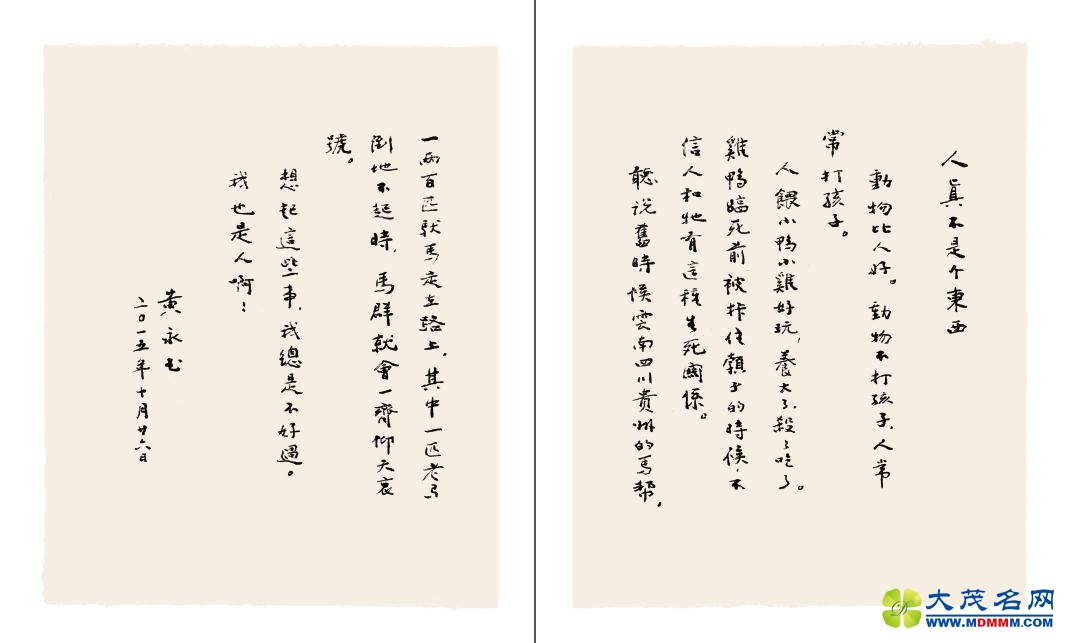 人真不是个東西
動物比人好。動物不打孩子,人常
常打孩子。
人餵小鴨小雞好玩,養大了,殺了吃了。
雞鴨臨死前被拤住頸子的時候,不
信人和牠有這種生死關係。
聽說舊時候雲南四川貴州的馬幫,
一兩百匹馱馬走在路上,其中一匹老马
倒地不起時,馬群就會一齊仰天哀
號。
想起這些事,我總是不好過。
我也是人啊!
黃永玉
二〇一五年十月廿六日
大茂名网
WWW.MDMMM.COM